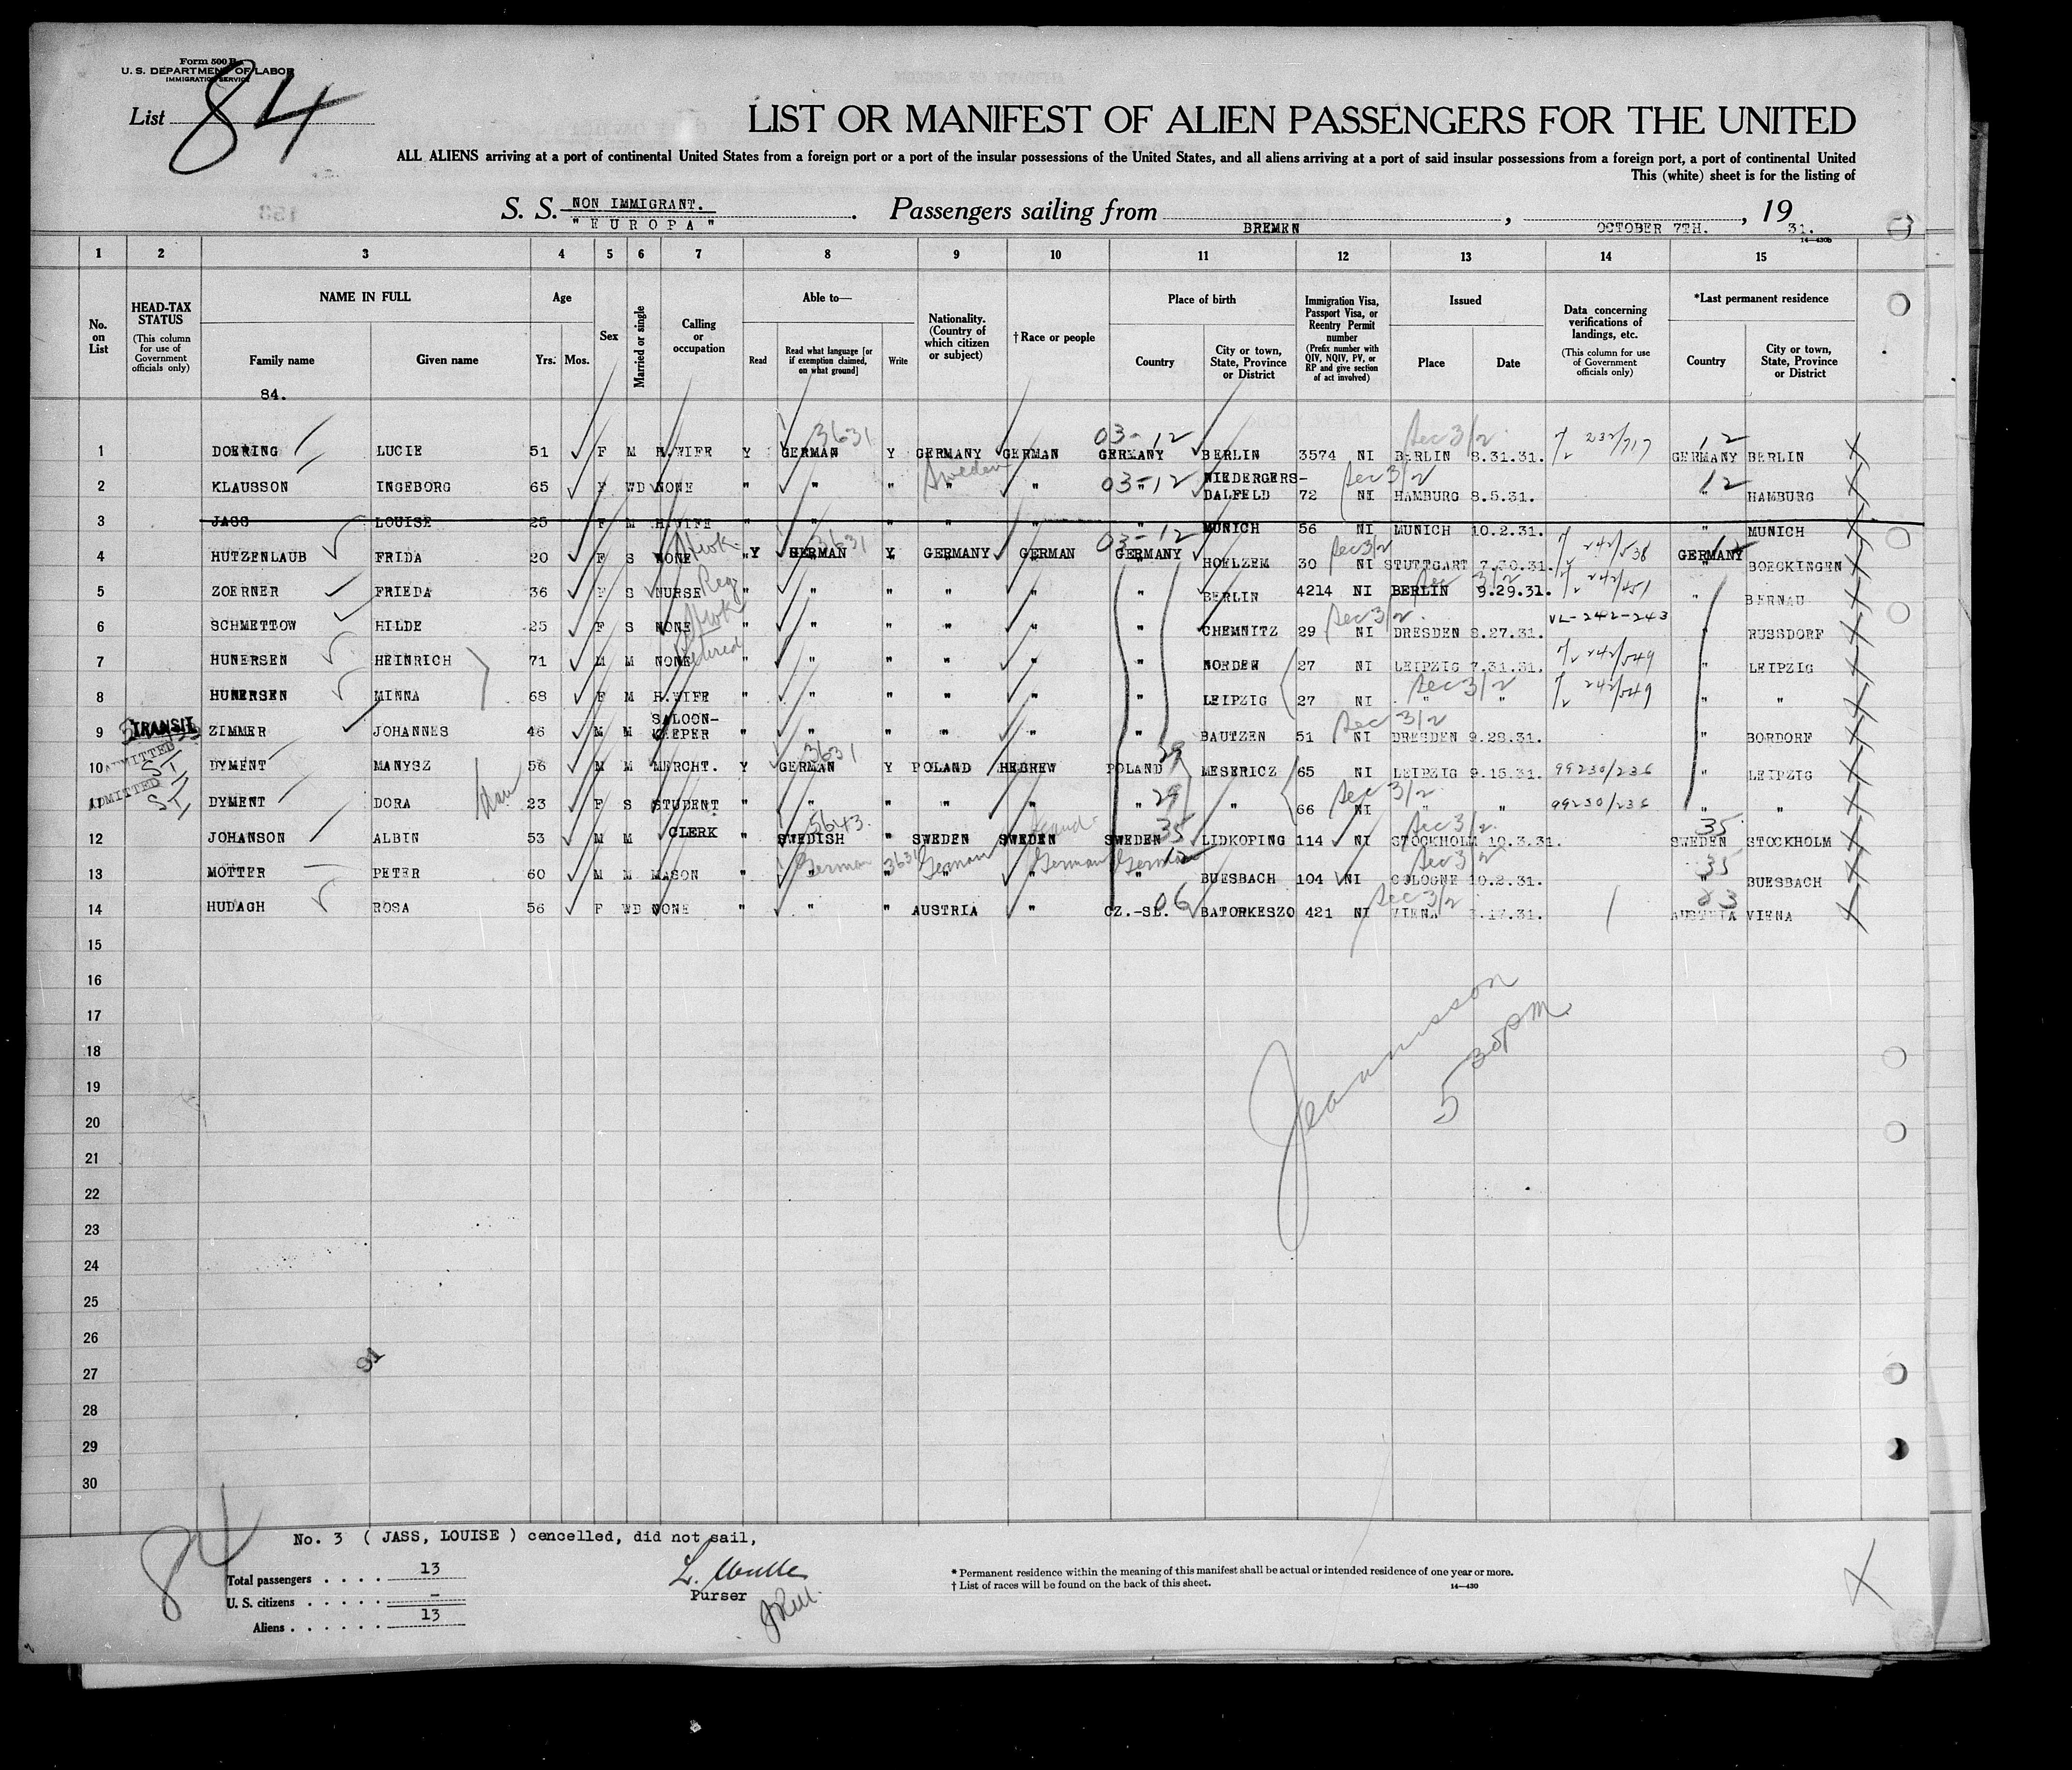 Form 500 B
U. S. DEPARTMENT OF LABOR
IMMIGRATION SERVICE
List 84
LIST OR MANIFEST OF ALIEN PASSENGERS FOR THE UNITED
ALL ALIENS arriving at a port of continental United States from a foreign port or a port of the insular possessions of the United States, and all aliens arriving at a port of said insular possessions from a foreign port, a port of continental United
This (white) sheet is for the listing of
S. S. NON IMMIGRANT. "EUROPA" . Passengers sailing from BREMEN , OCTOBER 7TH. , 19 31.
14—430b
1 2 3 4 5 6 7 8 9 10 11 12 13 14 15
No. on List
HEAD-TAX STATUS (This column for use of Government officials only)
NAME IN FULL Family name Given name
Age Yrs. Mos.
Sex
Married or single
Calling or occupation
Able to— Read Read what language [or if exemption claimed, on what ground] Write
Nationality. (Country of which citizen or subject)
†Race or people
Place of birth Country City or town, State, Province or District
Immigration Visa, Passport Visa, or Reentry Permit number (Prefix number with QIV, NQIV, PV, or RP and give section of act involved)
Issued Place Date
Data concerning verifications of landings, etc. (This column for use of Government officials only)
*Last permanent residence Country City or town, State, Province or District
84.
1 DOERING LUCIE 51 F M H.WIFE Y GERMAN 3631 Y GERMANY GERMAN 03-12 GERMANY BERLIN 3574 NI Sec 3/2 BERLIN 8.31.31. GERMANY 12 BERLIN
2 KLAUSSON INGEBORG 65 F WD NONE " " " " Sweden " 03-12 " NIEDERGERS-DALFELD 72 NI Sec 3/2 HAMBURG 8.5.31. " 12 HAMBURG
3 JASS LOUISE 25 F M H.WIFE " " " " " " MUNICH 56 NI MUNICH 10.2.31. " MUNICH
4 HUTZENLAUB FRIDA 20 F S NONE Y GERMAN 3631 Y GERMANY GERMAN 03-12 GERMANY HOELZEM 30 NI Sec 3/2 STUTTGART 7.30.31. 242/538 GERMANY BOECKINGEN
5 ZOERNER FRIEDA 36 F S NURSE " " " " " " BERLIN 4214 NI Sec 3/2 BERLIN 9.29.31. 242/451 " BERNAU
6 SCHMETTOW HILDE 25 F S NONE " " " " " " CHEMNITZ 29 NI Sec 3/2 DRESDEN 8.27.31. VL-242-243 " RUSSDORF
7 HUNERSEN HEINRICH 71 M M NONE Retired " " " " " " NORDEN 27 NI LEIPZIG 7.31.31. 242/549 " LEIPZIG
8 HUNERSEN MINNA 68 F M H.WIFE " " " " " " LEIPZIG 27 NI Sec 3/2 " " 242/549 " "
9 TRANSIT ZIMMER JOHANNES 46 M M SALOON-KEEPER " " " " " " BAUTZEN 51 NI Sec 3/2 DRESDEN 9.28.31. " BORDORF
10 ADMITTED ST DYMENT MANYSZ 56 M M MERCHT. Y GERMAN 3631 Y POLAND HEBREW POLAND 29 MESERICZ 65 NI LEIPZIG 9.15.31. 99230/236 " LEIPZIG
11 ADMITTED ST DYMENT DORA 23 F S STUDENT " " " " " " 29 " 66 NI Sec 3/2 " " 99230/236 " "
12 JOHANSON ALBIN 53 M M CLERK " SWEDISH 5643 " SWEDEN SWEDEN SWEDEN 35 LIDKOPING 114 NI Sec 3/2 STOCKHOLM 10.3.31. SWEDEN 35 STOCKHOLM
13 MOTTER PETER 60 M M MASON " " German 3631 " " German " German " German BUESBACH 104 NI Sec 3/2 COLOGNE 10.2.31. " 35 BUESBACH
14 HUDAGH ROSA 56 F WD NONE " " " AUSTRIA " CZ.-SL. 06 BATORKESZO 421 NI Sec 3/2 VIENA AUSTRIA VIENA
15
16
17
18
19
20
21
22
23
24
25
26
27
28
29
30
Jeannisson
5 30 PM
91
84
No. 3 ( JASS, LOUISE ) cencelled, did not sail,
Total passengers . . . . 13
U. S. citizens . . . . . –
Aliens . . . . . . 13
Purser
* Permanent residence within the meaning of this manifest shall be actual or intended residence of one year or more.
† List of races will be found on the back of this sheet. 14—430